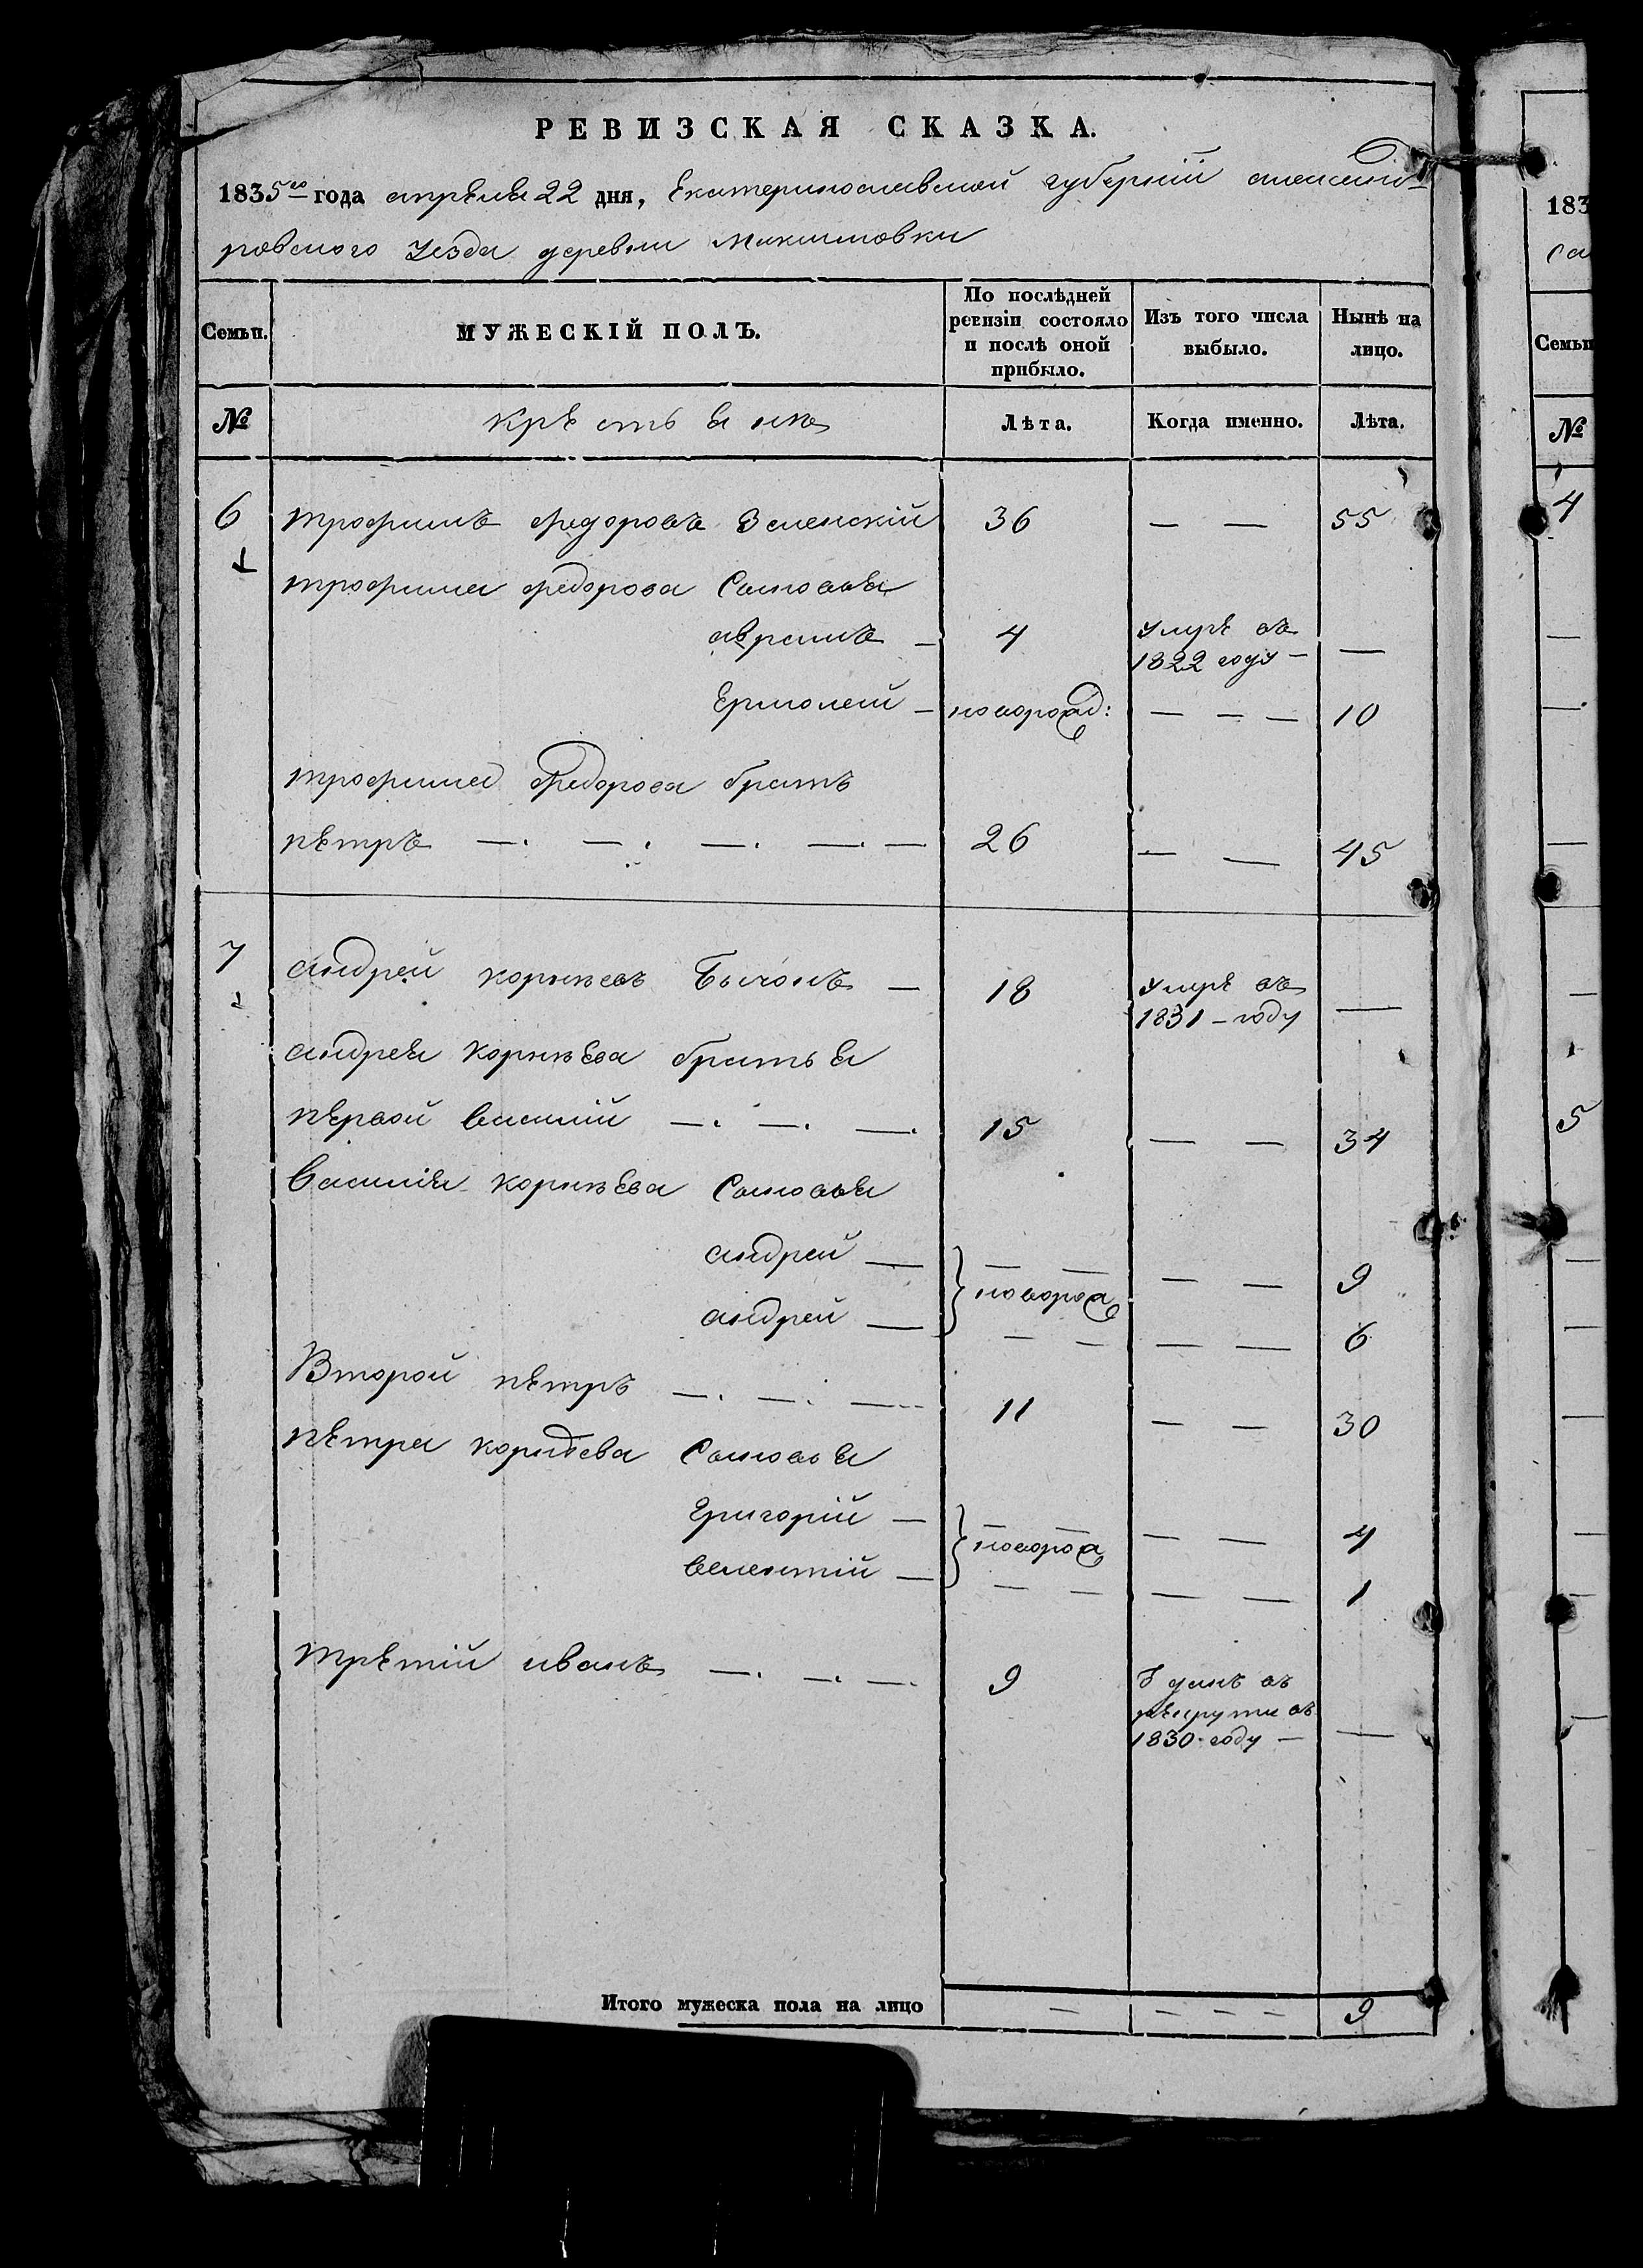 РЕВИЗСКАЯ СКАЗКА.
1835го года апреля 22 дня, Екатеринославской губернии александ-
ровского уезда деревни Максимовки
Семьи. МУЖЕСКІЙ ПОЛЪ. По послѣдней ревизіи состояло и послѣ оной прибыло. Изъ того числа выбыло. Нынѣ на лицо.
№ Лѣта. Когда именно. Лѣта.
6 трофимъ федоровъ Зеленскій 36 — — 55
трофима федорова Сыновья
аврамъ — 4 умре въ 1822 году — —
Ермолей — новорожд: — — — 10
трофима Федорова братъ
петръ —. —. —. —. — 26 — — 45
7 андрей корнеевъ Бычокъ — 18 умре въ 1831 – году —
андрея корнѣева братья
первой василій —. —. —. 15 — — 34
Василія корнѣева Сыновья
андрей — } новорож — — 9
андрей — — — 6
Второй петръ —. —. — 11 — — 30
петра корнѣева Сыновья
Григорій — } новорож — — 4
— — — 1
третій иванъ —. —. —. 9 в рекруты въ 1830 году — —
Итого мужеска пола на лицо — — — — 9
183
Семьи
№
4
5